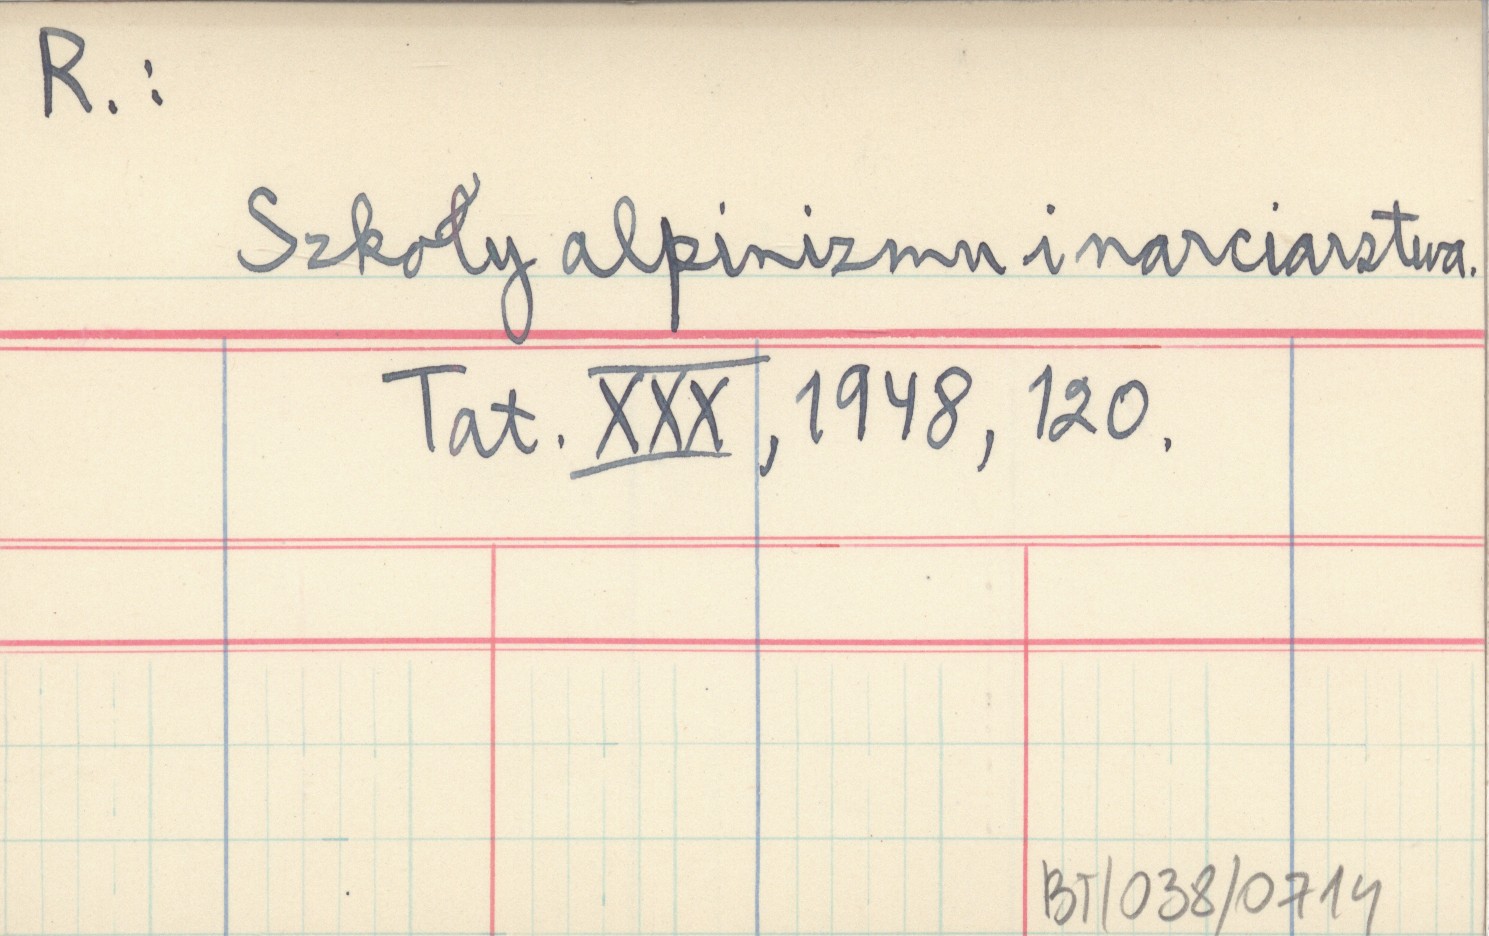 R.:
Szkoły alpinizmu i narciarstwa.
Tat. XXX, 1948, 120.
BT/038/0714